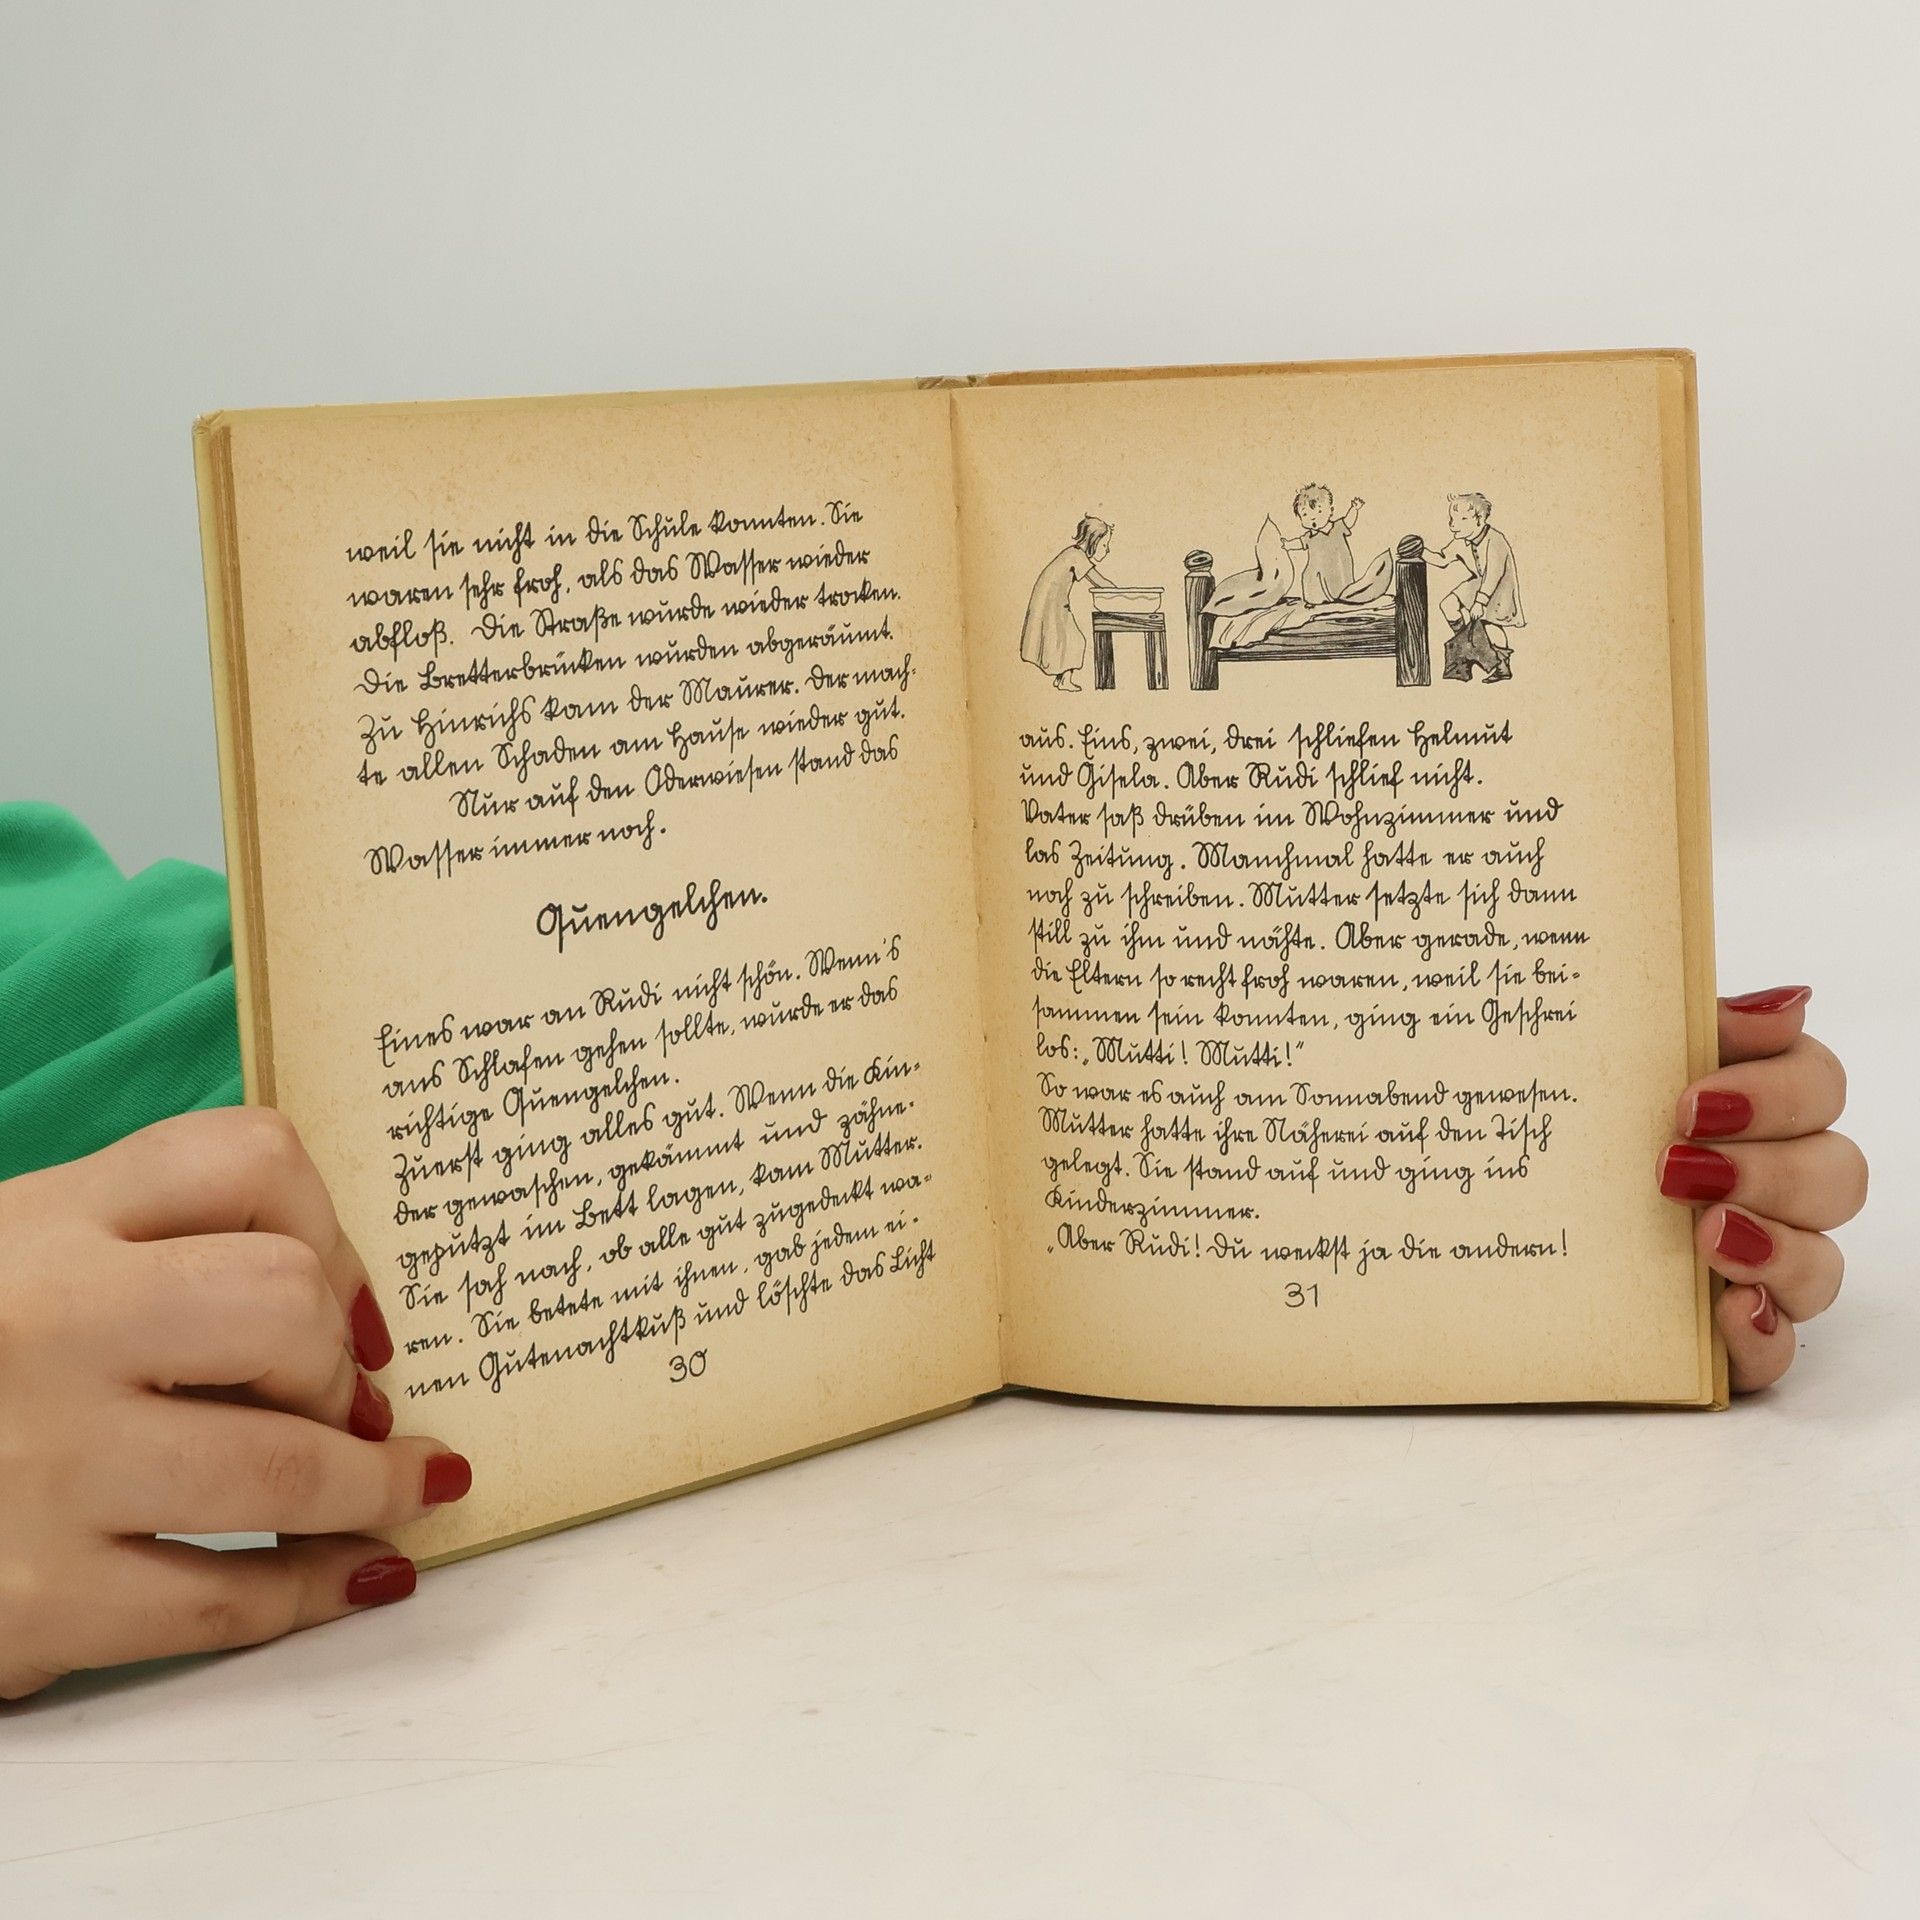 weil sie nicht in die Schule konnten. Sie
waren sehr froh, als das Wasser wieder
abfloß. Die Straße wurde wieder trocken.
Die Bretterbrücken wurden abgeräumt.
Zu Hinrichs kam der Maurer. Der mach-
te allen Schaden am Hause wieder gut.
Nur auf den Oderwiesen stand das
Wasser immer noch.
Quengelchen.
Eines war an Rudi nicht schön. Wenn's
ans Schlafen gehen sollte, wurde er das
richtige Quengelchen.
Zuerst ging alles gut. Wenn die Kin-
der gewaschen, gekämmt und zähne-
geputzt im Bett lagen, kam Mutter.
Sie sah nach, ob alle gut zugedeckt wa-
ren. Sie betete mit ihnen, gab jedem ei-
nen Gutenachtkuß und löschte das Licht
30
aus. Eins, zwei, drei schliefen Helmut
und Gisela. Aber Rudi schlief nicht.
Vater saß drüben im Wohnzimmer und
las Zeitung. Manchmal hatte er auch
noch zu schreiben. Mutter setzte sich dann
still zu ihm und nähte. Aber gerade, wenn
die Eltern so recht froh waren, weil sie bei-
sammen sein konnten, ging ein Geschrei
los: „Mutti! Mutti!“
So war es auch am Sonnabend gewesen.
Mutter hatte ihre Näherei auf den Tisch
gelegt. Sie stand auf und ging ins
Kinderzimmer.
„Aber Rudi! Du weckst ja die andern!
31